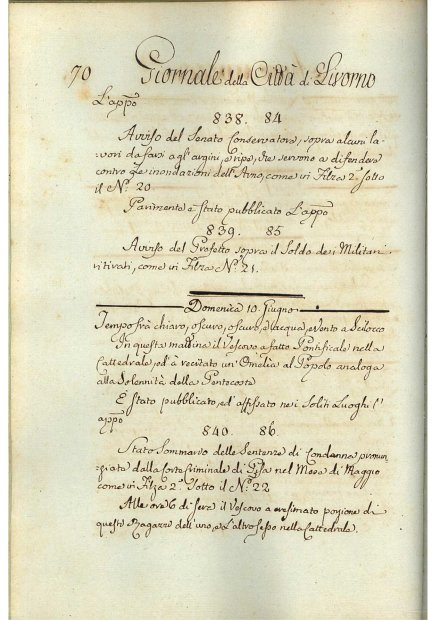 70 Giornale della Città di Livorno
L'appo
838. 84
Avviso del Senato Conservatore, sopra alcuni la-
vori da farsi agl'argini, e ripe, che servono a difendere
contro le inondazioni dell'Arno, come in Filza 2a. sotto
il No. 20
Parimente è stato pubblicato L'appo
839. 85
Avviso del Prefetto sopra il Soldo dei Militari
ritirati, come in Filza No. 21.
Domenica 10. Giugno
Tempo frà chiaro, oscuro, oscuro, e acqua, e vento a Scilocco
In questa mattina il Vescovo a fatto Pontificale nella
Cattedrale, ed'à recitato un'Omelia al Popolo analoga
alla Solennità della Pentecoste
È stato pubblicato, ed'affissato nei Soliti Luoghi l'
appo
840. 86.
Stato Sommario delle Sentenze di Condanna pronun-
ziate dalla Corte Criminale di Pisa nel Mese di Maggio
come in Filza 2a. Sotto il No. 22
Alle ore 6 di sera il Vescovo a cresimato porzione di
questi Ragazzi dell'uno, e L'altro sesso nella Cattedrale.